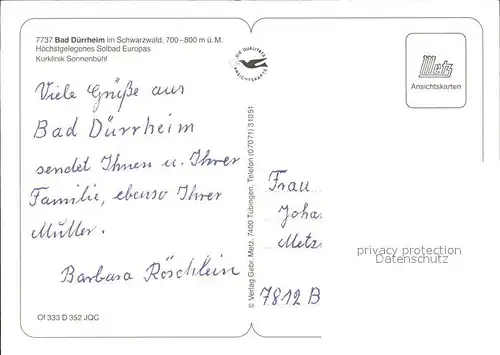 7737 Bad Dürrheim im Schwarzwald, 700–800 m ü. M.
Höchstgelegenes Solbad Europas
Kurklinik Sonnenbühl
DIE QUALITÄTS
ANSICHTSKARTE
Metz
Ansichtskarten
Viele Grüße aus
Bad Dürrheim
sendet Ihnen u. Ihrer
Familie, ebenso Ihrer
Mutter.
Barbara Röschlein
© Verlag Gebr. Metz, 7400 Tübingen, Telefon (07071) 31051
Frau
Joha
Metz
7812 B
privacy protection
Datenschutz
Of 333 D 352 JQC